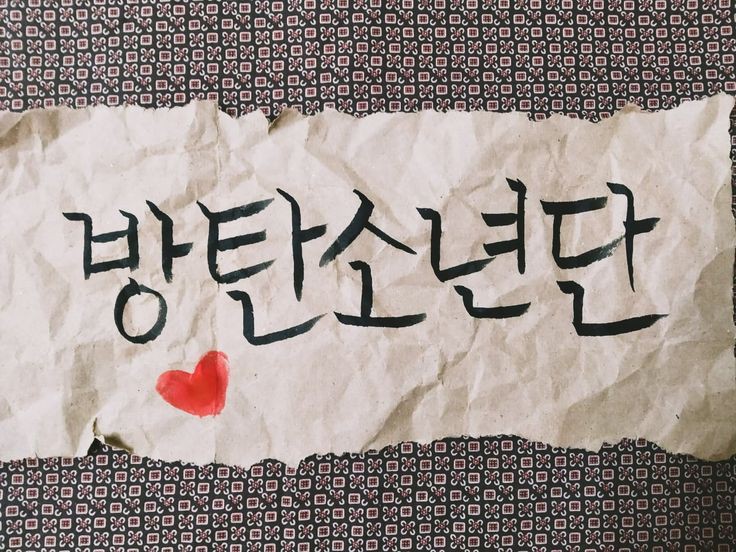 방탄소년단